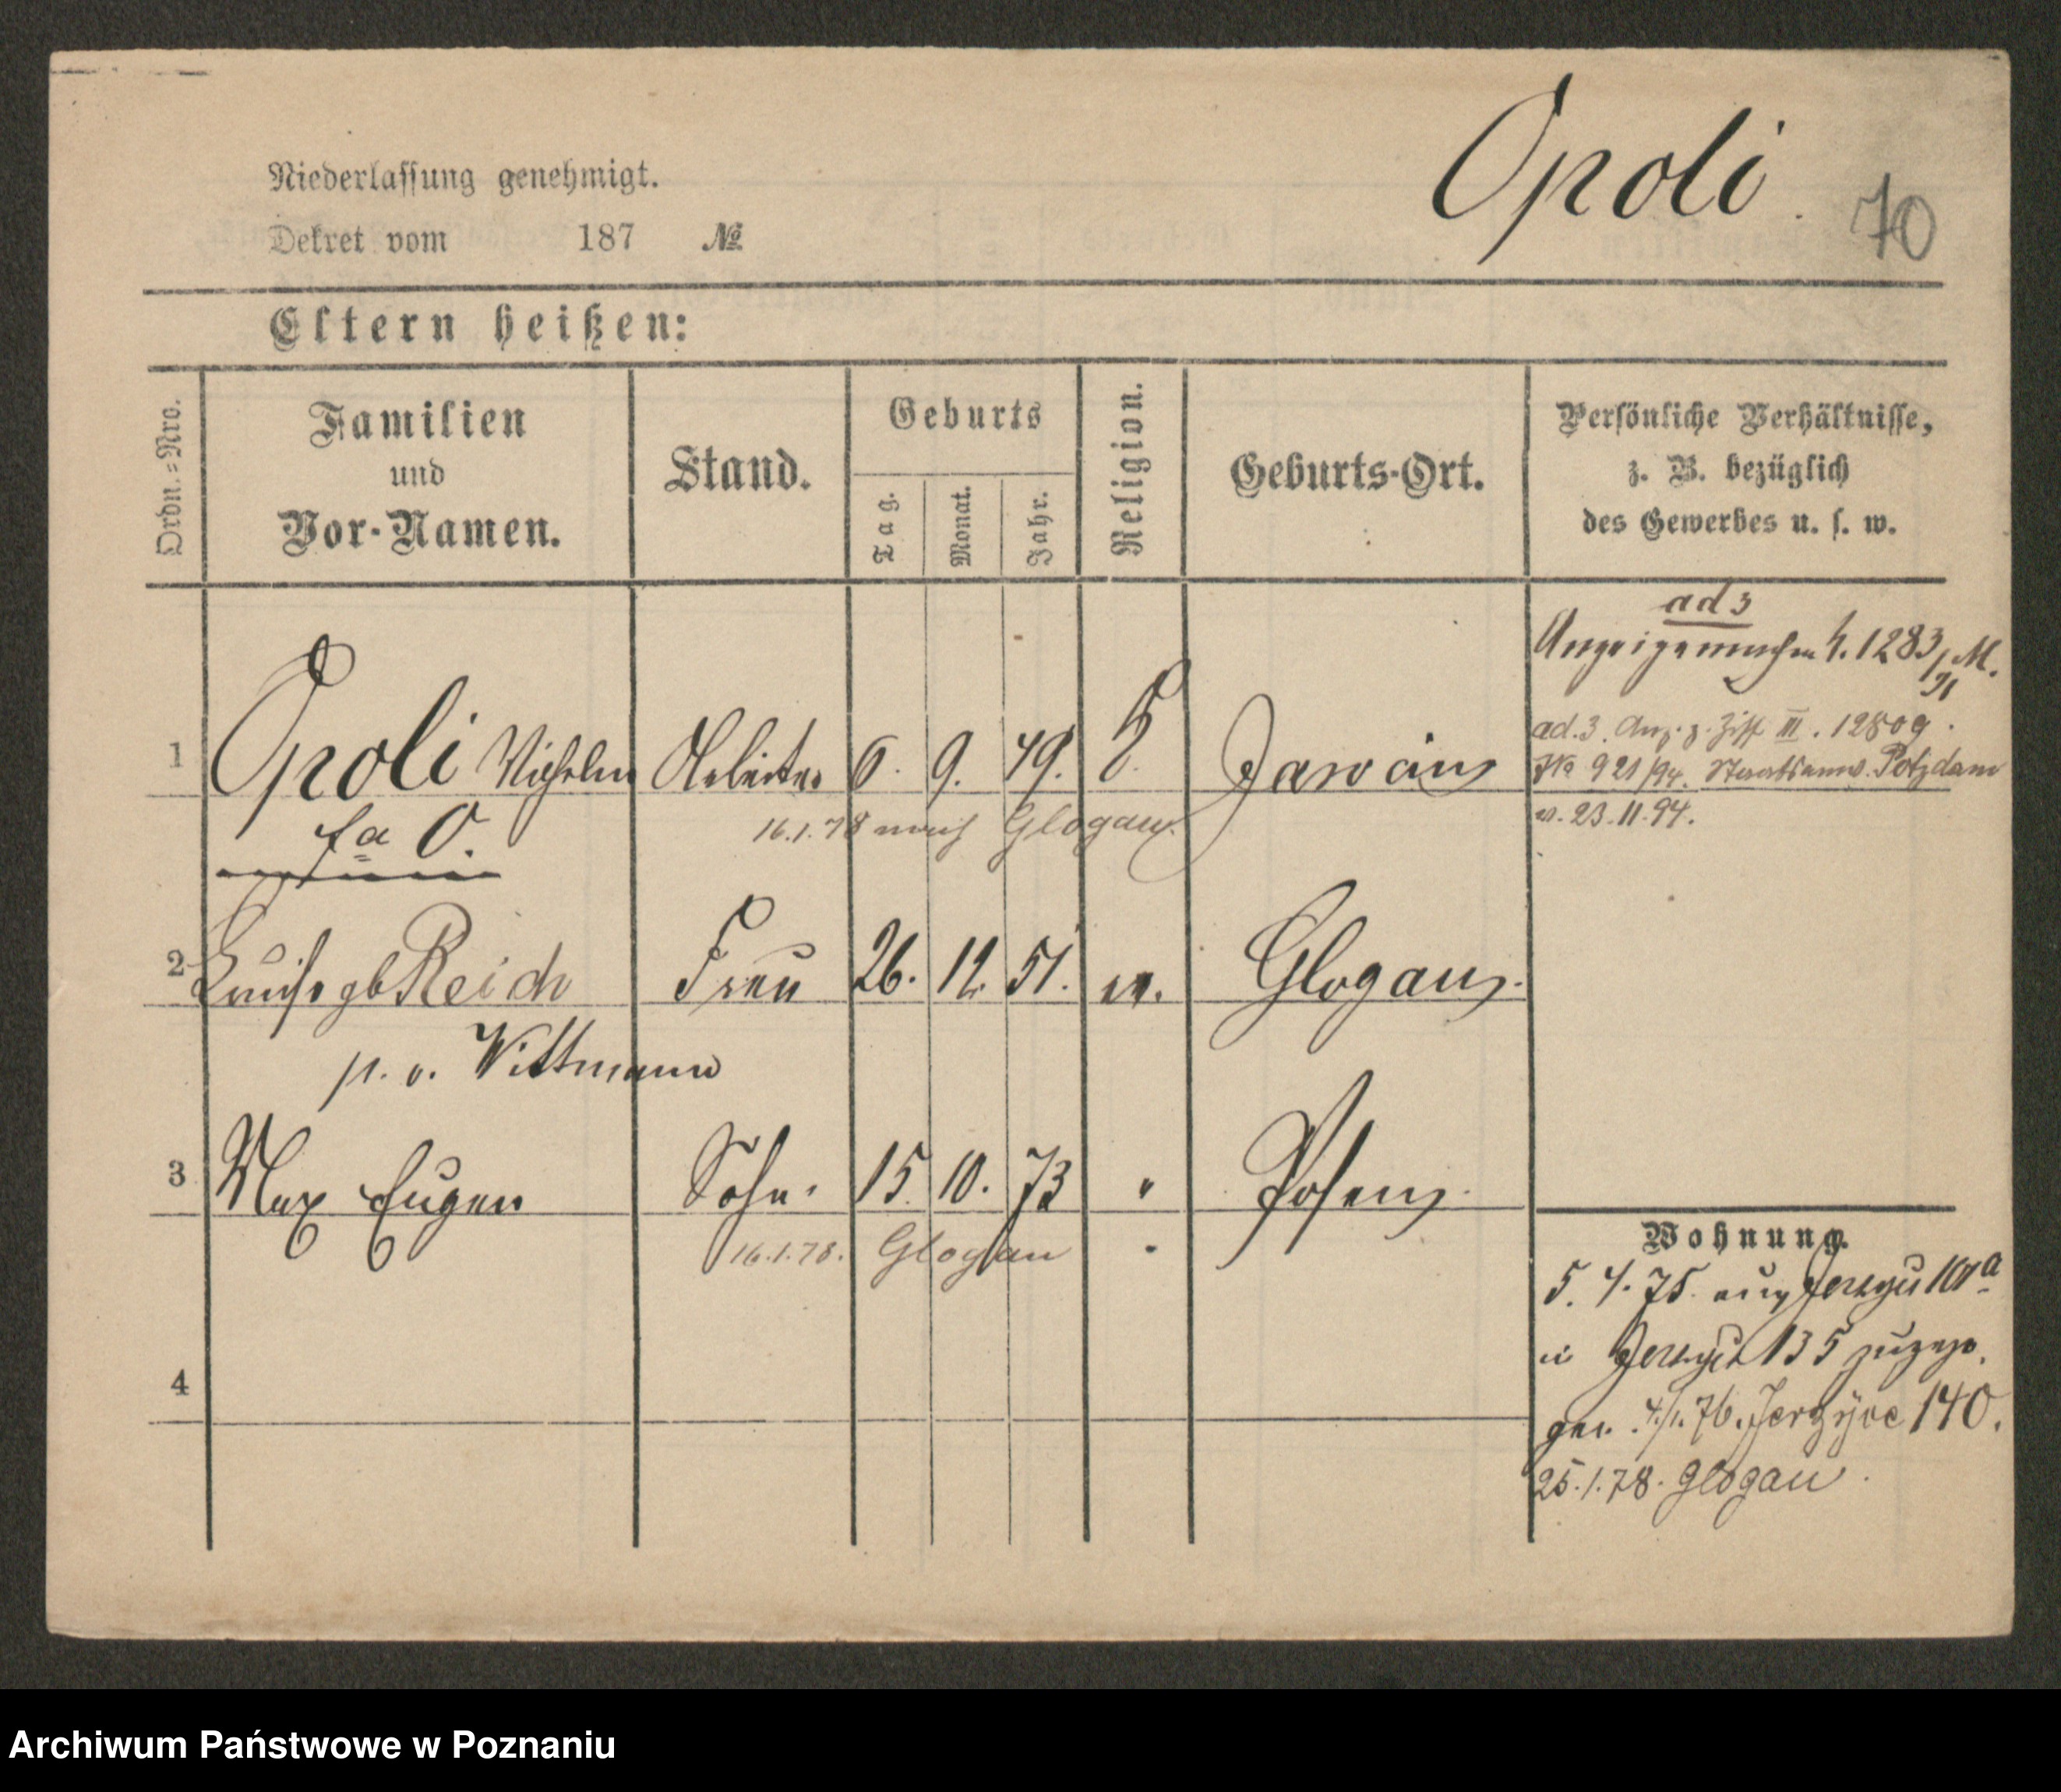 Opoli.
70
Niederlassung genehmigt.
Dekret vom 187 №
Eltern heißen:
Ordn.=Nro.
Familien
und
Vor-Namen.
Stand.
Geburts
Tag.
Monat.
Jahr.
Religion.
Geburts-Ort.
Persönliche Verhältnisse,
z. B. bezüglich
des Gewerbes u. s. w.
ad 3
1283/M.
91
ad. 3. III. 12809.
921/94. Staatsanw. Potzdam
v. 23.11.94.
1 Opoli Wilhelm Arbeiter 6. 9. 49. Jarocin
fa O.
16.1.78 nach Glogau.
2 Luise gb Reich Frau 26. 12. 51. ev. Glogau.
p. v. Wittmann
3 Max Eugen Sohn. 15. 10. 73 " Posen.
16.1.78. Glogau "
Wohnung.
5. 4. 75. aus
135 zugezo
gen. 76. Jerzyce 140.
25.1.78. Glogau.
4
Archiwum Państwowe w Poznaniu